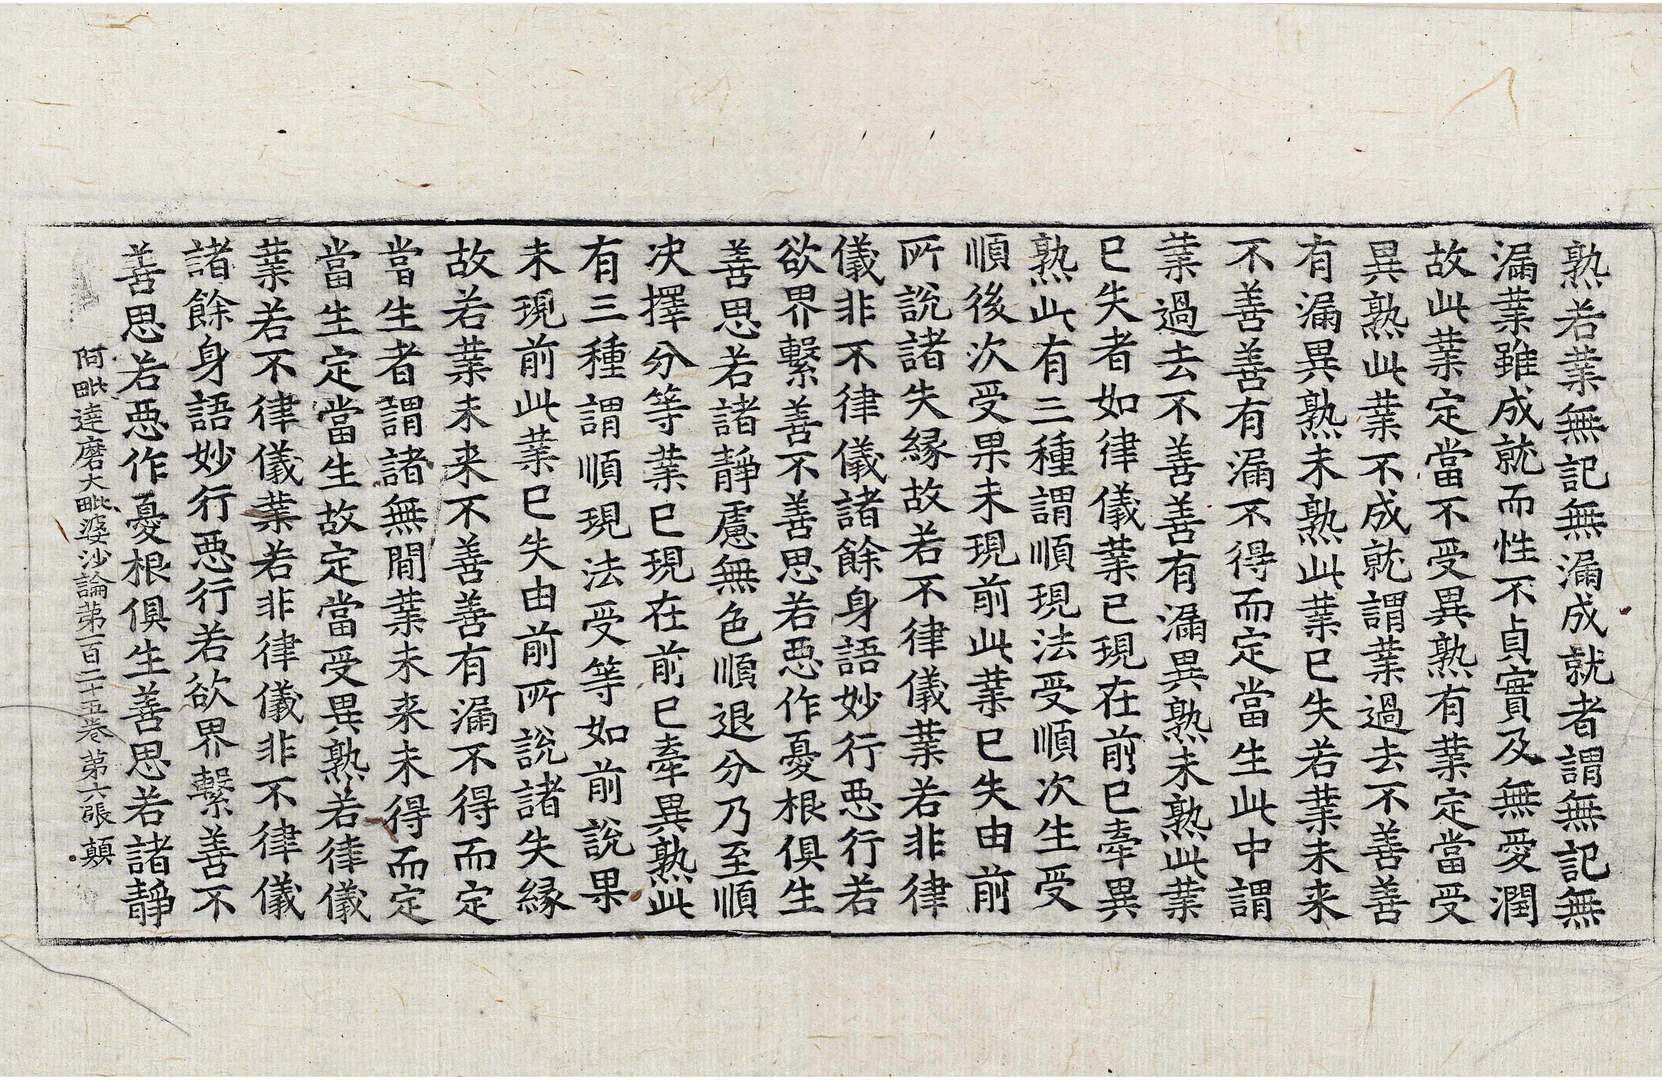 熟若業無記無漏成就者謂無記無
漏業雖成就而性不貞實及無愛潤
故此業定當不受異熟有業定當受
異熟此業不成就謂業過去不善善
有漏異熟未熟此業已失若業未来
不善善有漏不得而定當生此中謂
業過去不善善有漏異熟未熟此業
已失者如律儀業已現在前已牽異
熟此有三種謂順現法受順次生受
順後次受果未現前此業已失由前
所說諸失緣故若不律儀業若非律
儀非不律儀諸餘身語妙行惡行若
欲界繫善不善思若惡作憂根俱生
善思若諸靜慮無色順退分乃至順
決擇分等業已現在前已牽異熟此
有三種謂順現法受等如前說果
未現前此業已失由前所說諸失緣
故若業未来不善善有漏不得而定
當生者謂諸無間業未来未得而定
當生定當生故定當受異熟若律儀
業若不律儀業若非律儀非不律儀
諸餘身語妙行惡行若欲界繫善不
善思若惡作憂根俱生善思若諸靜
阿毗達磨大毗婆沙論第一百二十五卷 第六張 顛